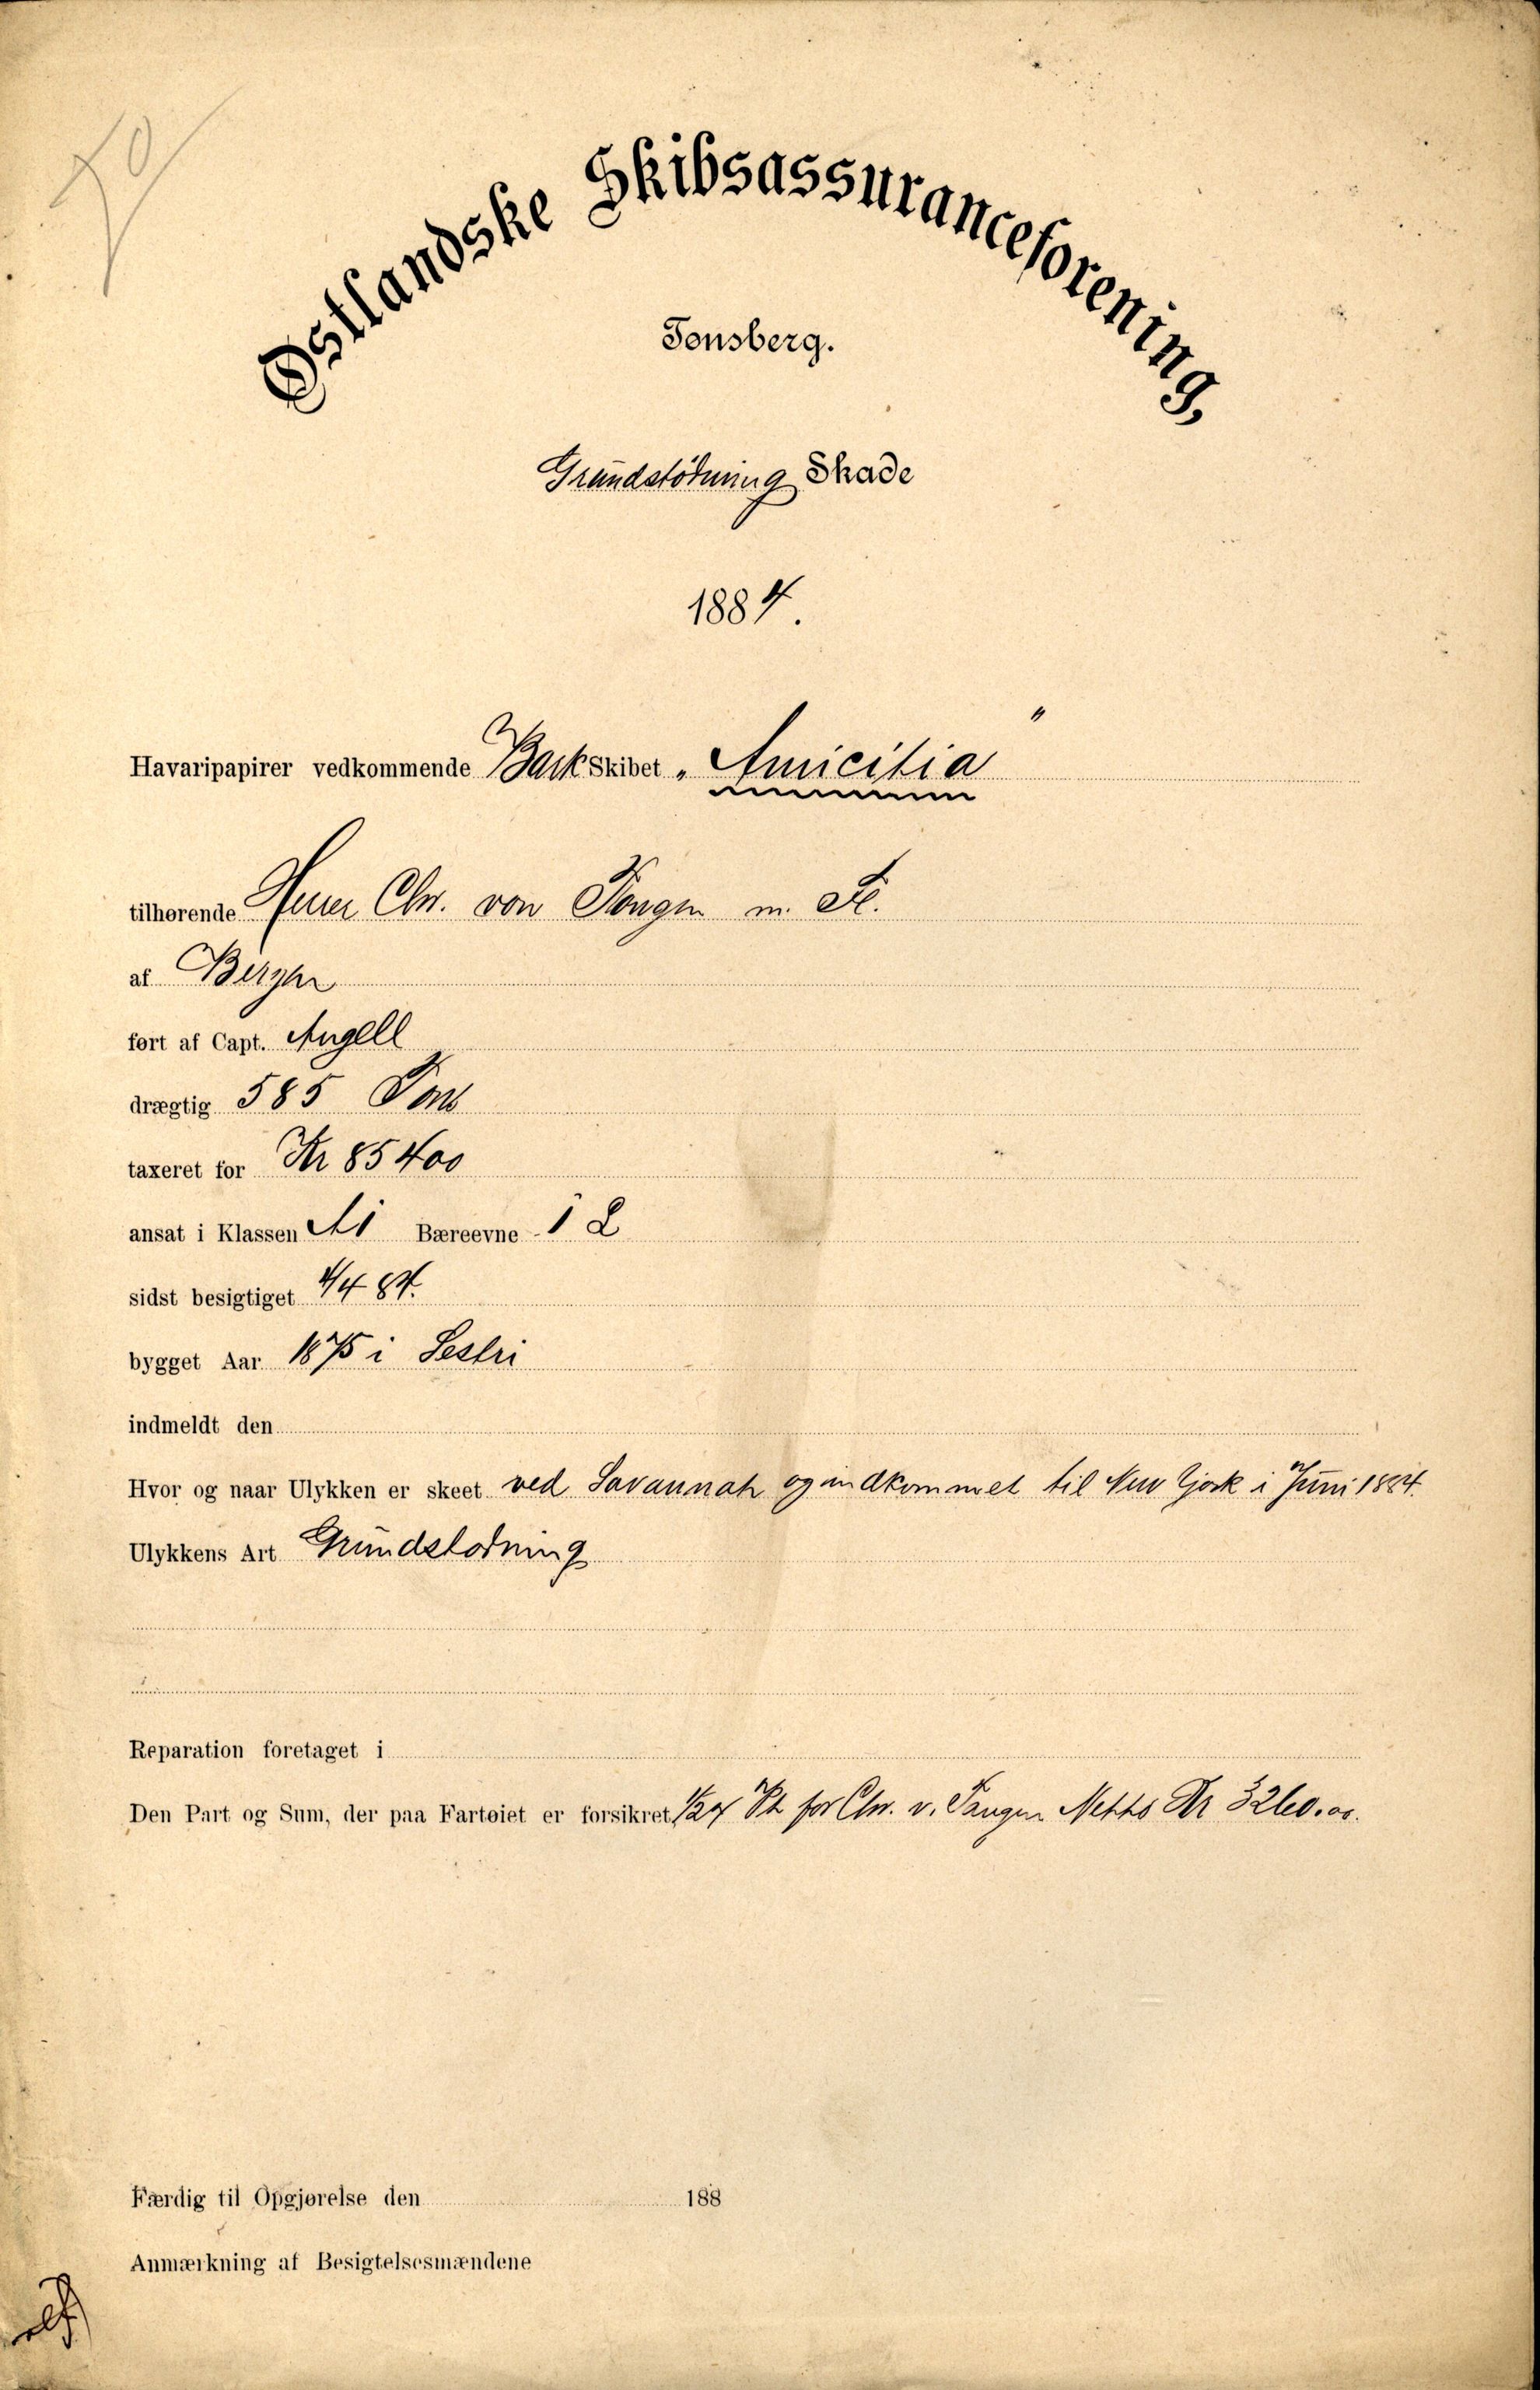 Østlandske Skibsassuranceforening,
Tønsberg.
Grundstødning Skade
1884.
Havaripapirer vedkommende Bark Skibet „Amicitia"
tilhørende Herrer Chr. von Tangen m. Fl.
af Bergen
ført af Capt. Angell
drægtig 585 Tons
taxeret for Kr 85400
ansat i Klassen A1 Bæreevne 1 L
sidst besigtiget 4/4 84.
bygget Aar 1875 i Sestri
indmeldt den
Hvor og naar Ulykken er skeet ved Savannah og indkommet til New York i Juni 1884.
Ulykkens Art Grundstødning
Reparation foretaget i
Den Part og Sum, der paa Fartøiet er forsikret, 1/24 Pt for Chr. v. Tangen Netto Kr 3260.00.
Færdig til Opgjørelse den 188
Anmærkning af Besigtelsesmændene